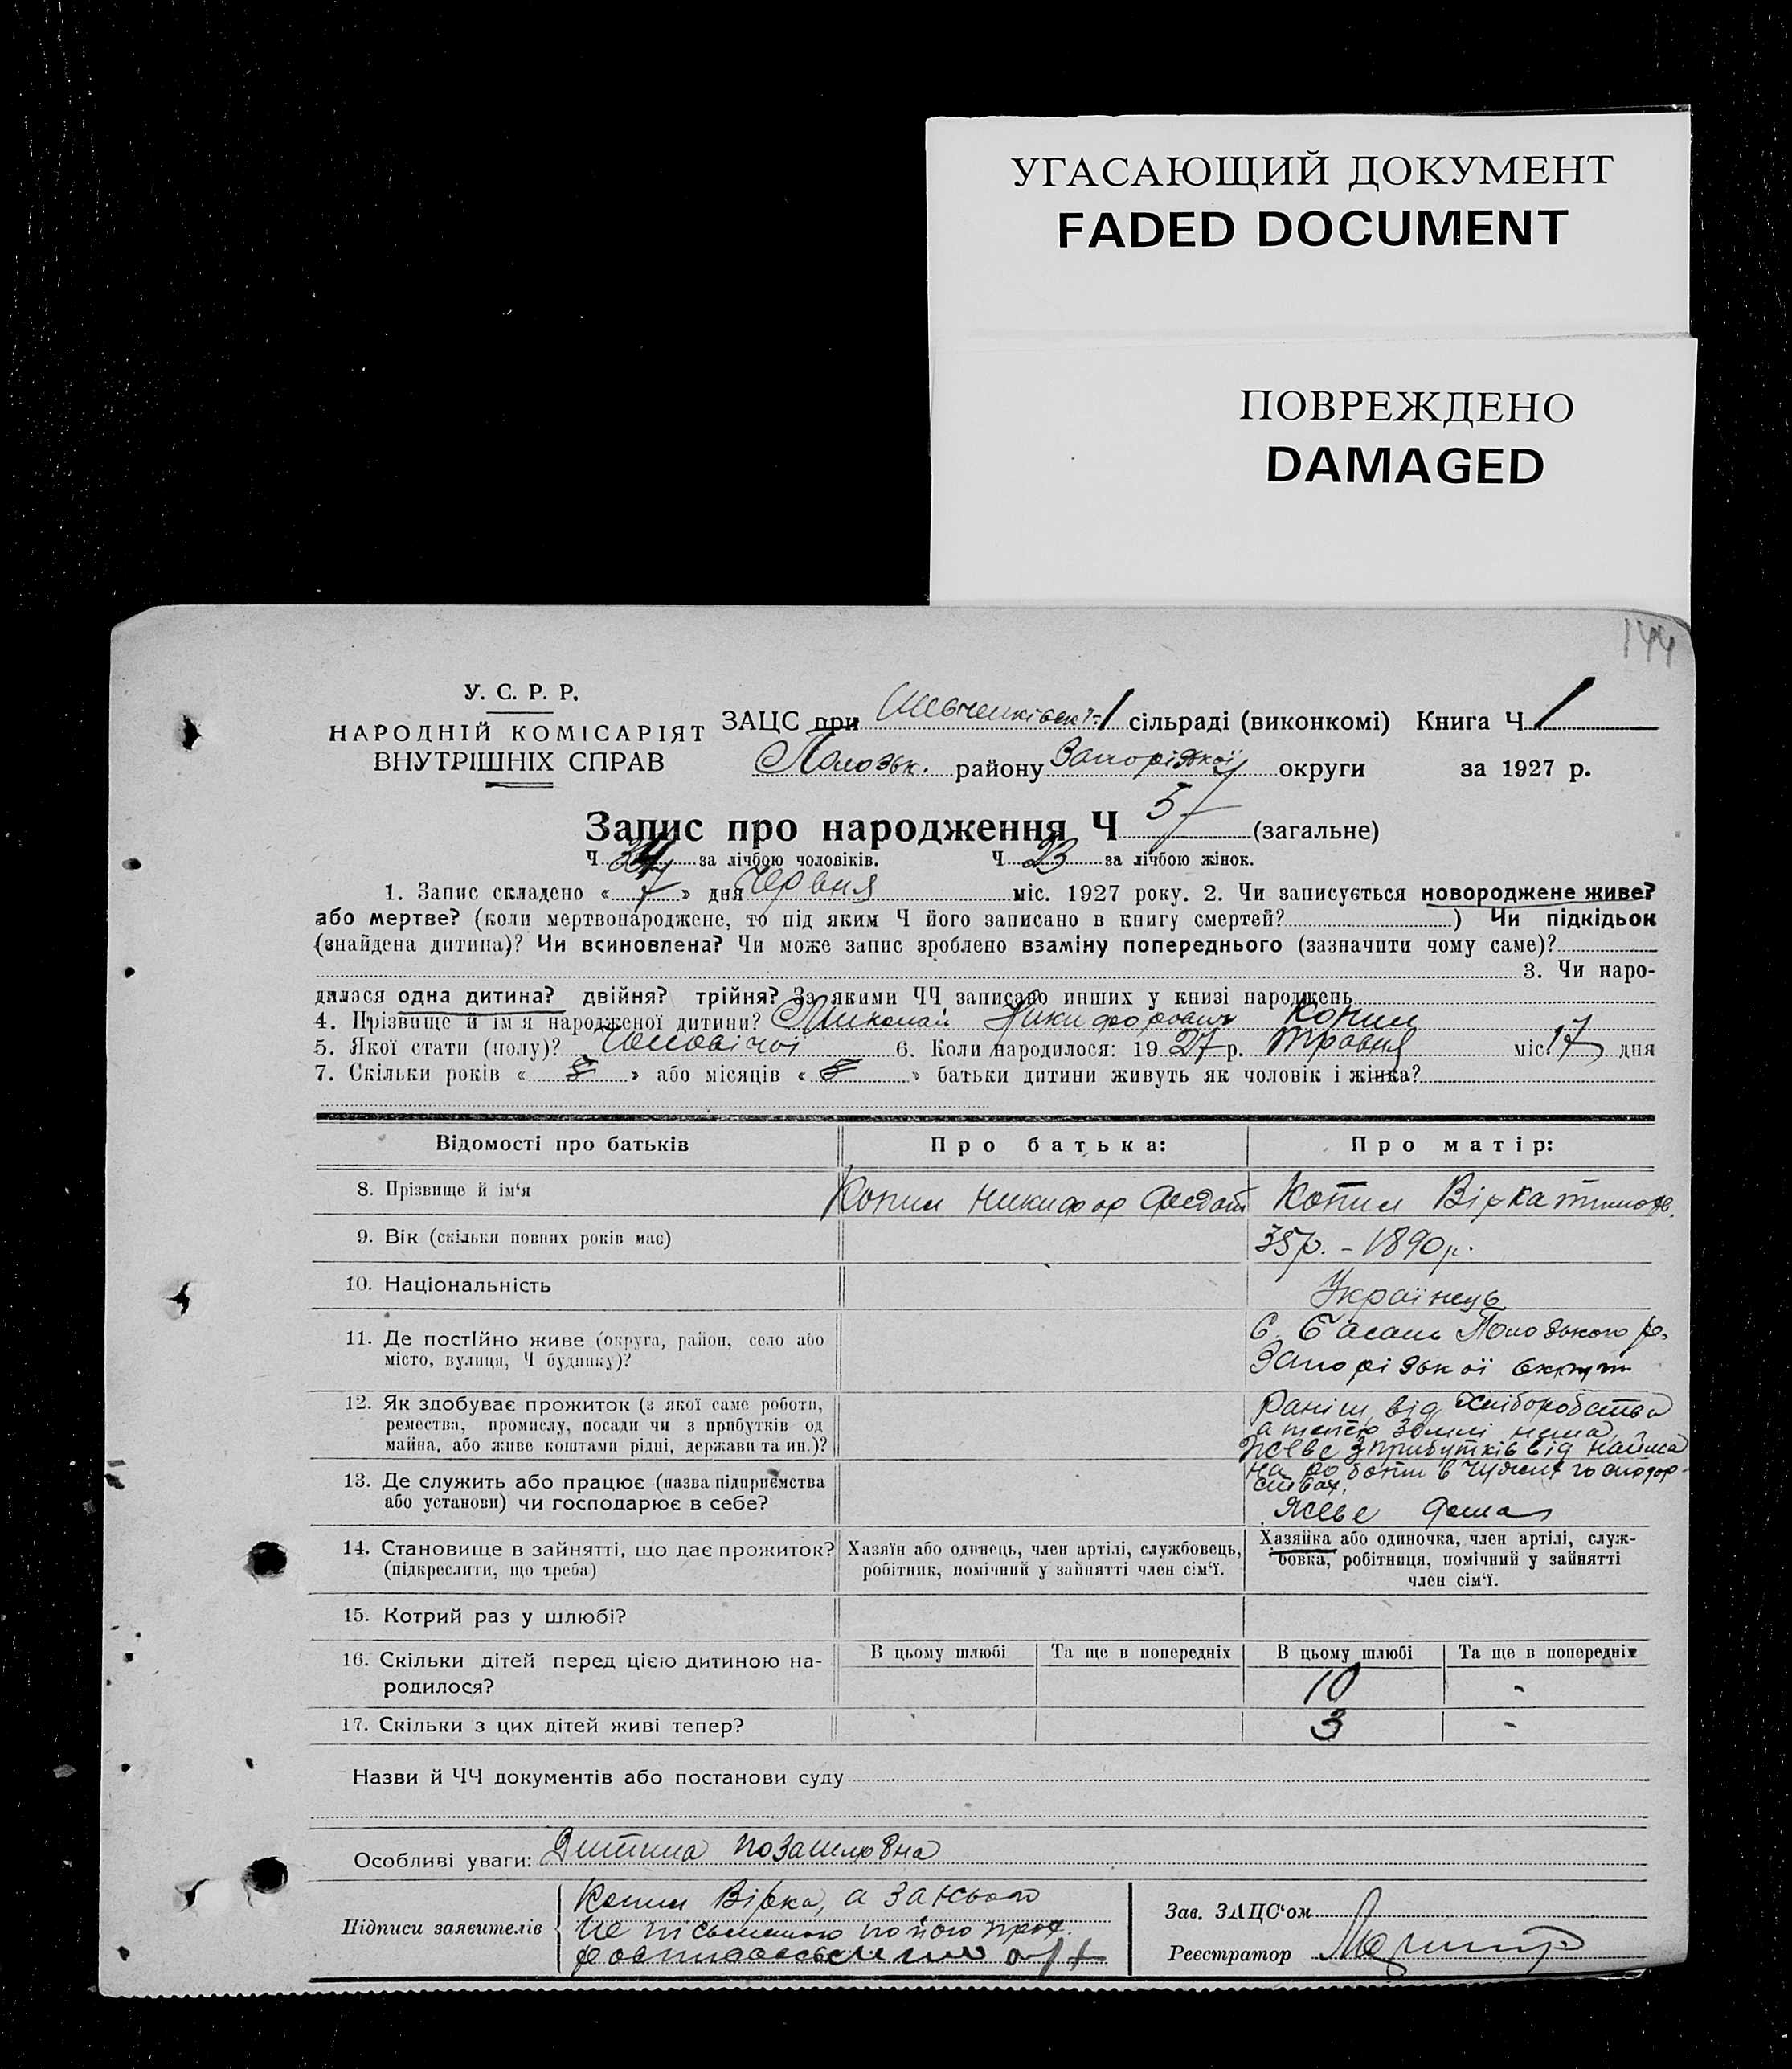 УГАСАЮЩИЙ ДОКУМЕНТ
FADED DOCUMENT
ПОВРЕЖДЕНО
DAMAGED
144
У. С. Р. Р.
НАРОДНІЙ КОМІСАРІЯТ
ВНУТРІШНІХ СПРАВ
ЗАЦС при Шевченківськ 1 сільраді (виконкомі) Книга Ч 1
Полозьк. району Запоріжкої округи за 1927 р.
Запис про народження Ч 57 (загальне)
Ч 34 за лічбою чоловіків. Ч 23 за лічбою жінок.
1. Запис складено « 7 » дня Червня міс. 1927 року. 2. Чи записується новороджене живе?
або мертве? (коли мертвонароджене, то під яким Ч його записано в книгу смертей? ) Чи підкідьок
(знайдена дитина)? Чи всиновлена? Чи може запис зроблено взаміну попереднього (зазначити чому саме)?
3. Чи наро-
дилася одна дитина? двійня? трійня? За якими ЧЧ записано инших у книзі народжень
4. Прізвище й ім'я народженої дитини? Миколай Никифорович Копил
5. Якої стати (полу)? Чоловічої 6. Коли народилося: 1927 р. травня міс. 17 дня
7. Скільки років « » або місяців « » батьки дитини живуть як чоловік і жінка?
Відомості про батьків Про батька: Про матір:
8. Прізвище й ім'я Копил Никифор Федот Копил Вірка тимов.
9. Вік (скільки повних років має) 35 р. - 1890 р.
10. Національність Українець
11. Де постійно живе (округа, район, село або С. Басань Полозького р.
місто, вулиця, Ч будинку)? Запорізької округи
12. Як здобуває прожиток (з якої саме роботи, Раніш від хліборобства
ремества, промислу, посади чи з прибутків од а тепер землі нема,
майна, або живе коштами рідні, держави та ин.)? живе з прибутків від найма
на роботи в чужих господар-
ствах.
13. Де служить або працює (назва підприємства
або установи) чи господарює в себе? живе дома
14. Становище в зайнятті, що дає прожиток? Хазяїн або одинець, член артілі, службовець, Хазяйка або одиночка, член артілі, служ-
(підкреслити, що треба) робітник, помічний у зайнятті член сім'ї. бовка, робітниця, помічний у зайнятті
член сім'ї.
15. Котрий раз у шлюбі?
16. Скільки дітей перед цією дитиною на- В цьому шлюбі Та ще в попередніх В цьому шлюбі Та ще в попередніх
родилося? 10 -
17. Скільки з цих дітей живі тепер? 3 -
Назви й ЧЧ документів або постанови суду
Особливі уваги: Дитина позашлюбна
Підписи заявителів Копил Вірка, а за
не письменного по його прох.
Зав. ЗАЦС'ом
Реєстратор